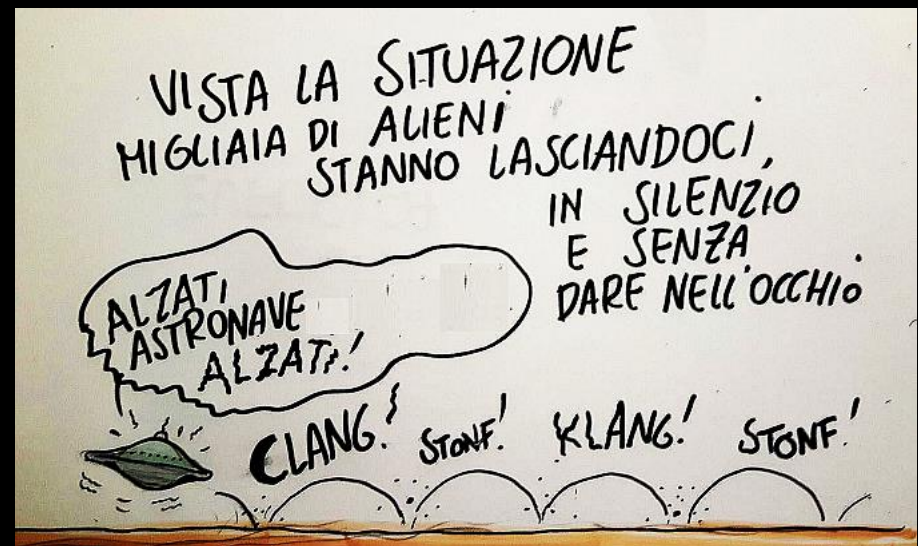 VISTA LA SITUAZIONE
MIGLIAIA DI ALIENI
STANNO LASCIANDOCI,
IN SILENZIO
E SENZA
DARE NELL'OCCHIO.
ALZATI
ASTRONAVE
ALZATI!
CLANG! STONF! KLANG! STONF!